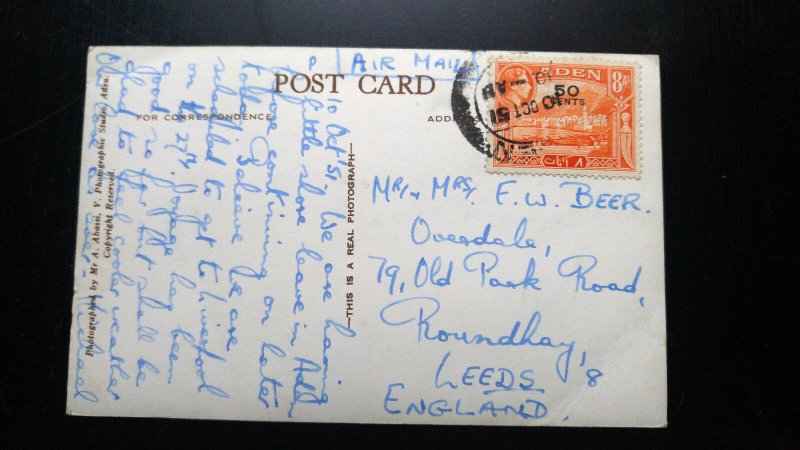 AIR MAIL
POST CARD
FOR CORRESPONDENCE
ADDRESS
ADEN
8
50
CENTS
٨
10 OCT 51
Mr/ & Mrs/ E. W. BEER.
Overdale,
79, Old Park Road,
Roundhay,
LEEDS, 8
ENGLAND.
—THIS IS A REAL PHOTOGRAPH—
10 Oct '51. We are having
a little shore leave in Aden
before continuing on later
today. I believe we are
scheduled to get to Liverpool
on the 27th. Voyage has been
good so far but shall be
glad to feel cooler weather
Welcome all over – Michael
Photographed by Mr A. Abassi, V. Photographic Studio, Aden.
Copyright Reserved.